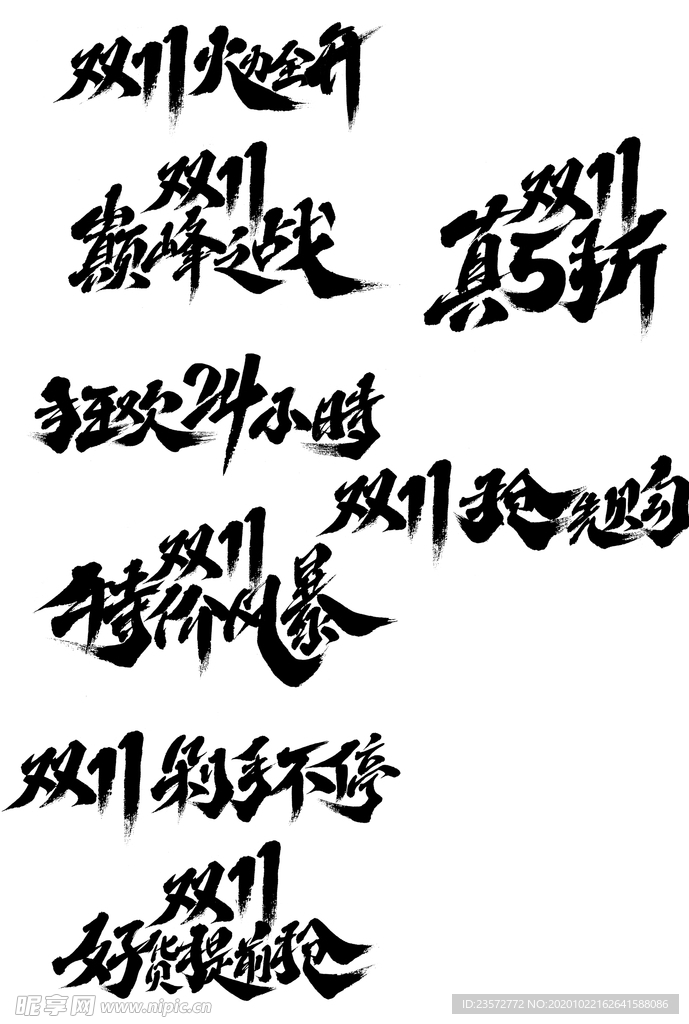 双11火力全开
双11
巅峰之战
双11
真5折
狂欢24小時
双11抢先购
双11
特价风暴
双11剁手不停
双11
好货提前抢
昵享网 www.nipic.cn
ID:23572772 NO:20201022162641588086